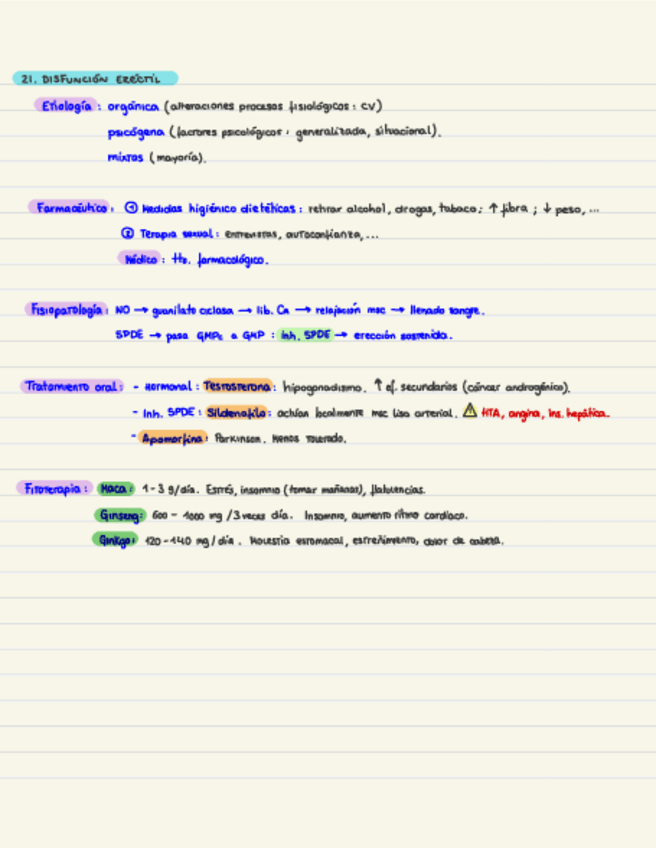 21. DISFUNCIÓN ERÉCTIL
Etiología: orgánica (alteraciones procesos fisiológicos: CV)
psicógena (factores psicológicos: generalizada, situacional).
mixtas (mayoría).
Farmacéutico: ① Medidas higiénico dietéticas: retirar alcohol, drogas, tabaco; ↑ fibra; ↓ peso, ...
② Terapia sexual: entrevistas, autoconfianza, ...
Médico: tto. farmacológico.
Fisiopatología: NO → guanilato ciclasa → lib. Ca → relajación msc → llenado sangre.
5PDE → pasa GMPc a GMP: inh. 5PDE → erección sostenida.
Tratamiento oral: - Hormonal: Testosterona: hipogonadismo. ↑ ef. secundarios (cáncer androgénico).
- Inh. 5PDE: Sildenafilo: actúan localmente msc liso arterial. ⚠ HTA, angina, ins. hepática.
- Apomorfina: Parkinson. Menos tolerado.
Fitoterapia: Maca: 1-3 g/día. Estrés, insomnio (tomar mañanas), flatulencias.
Ginseng: 600 - 1000 mg /3 veces día. Insomnio, aumento ritmo cardíaco.
Ginkgo: 120-140 mg/día. Molestia estomacal, estreñimiento, dolor de cabeza.